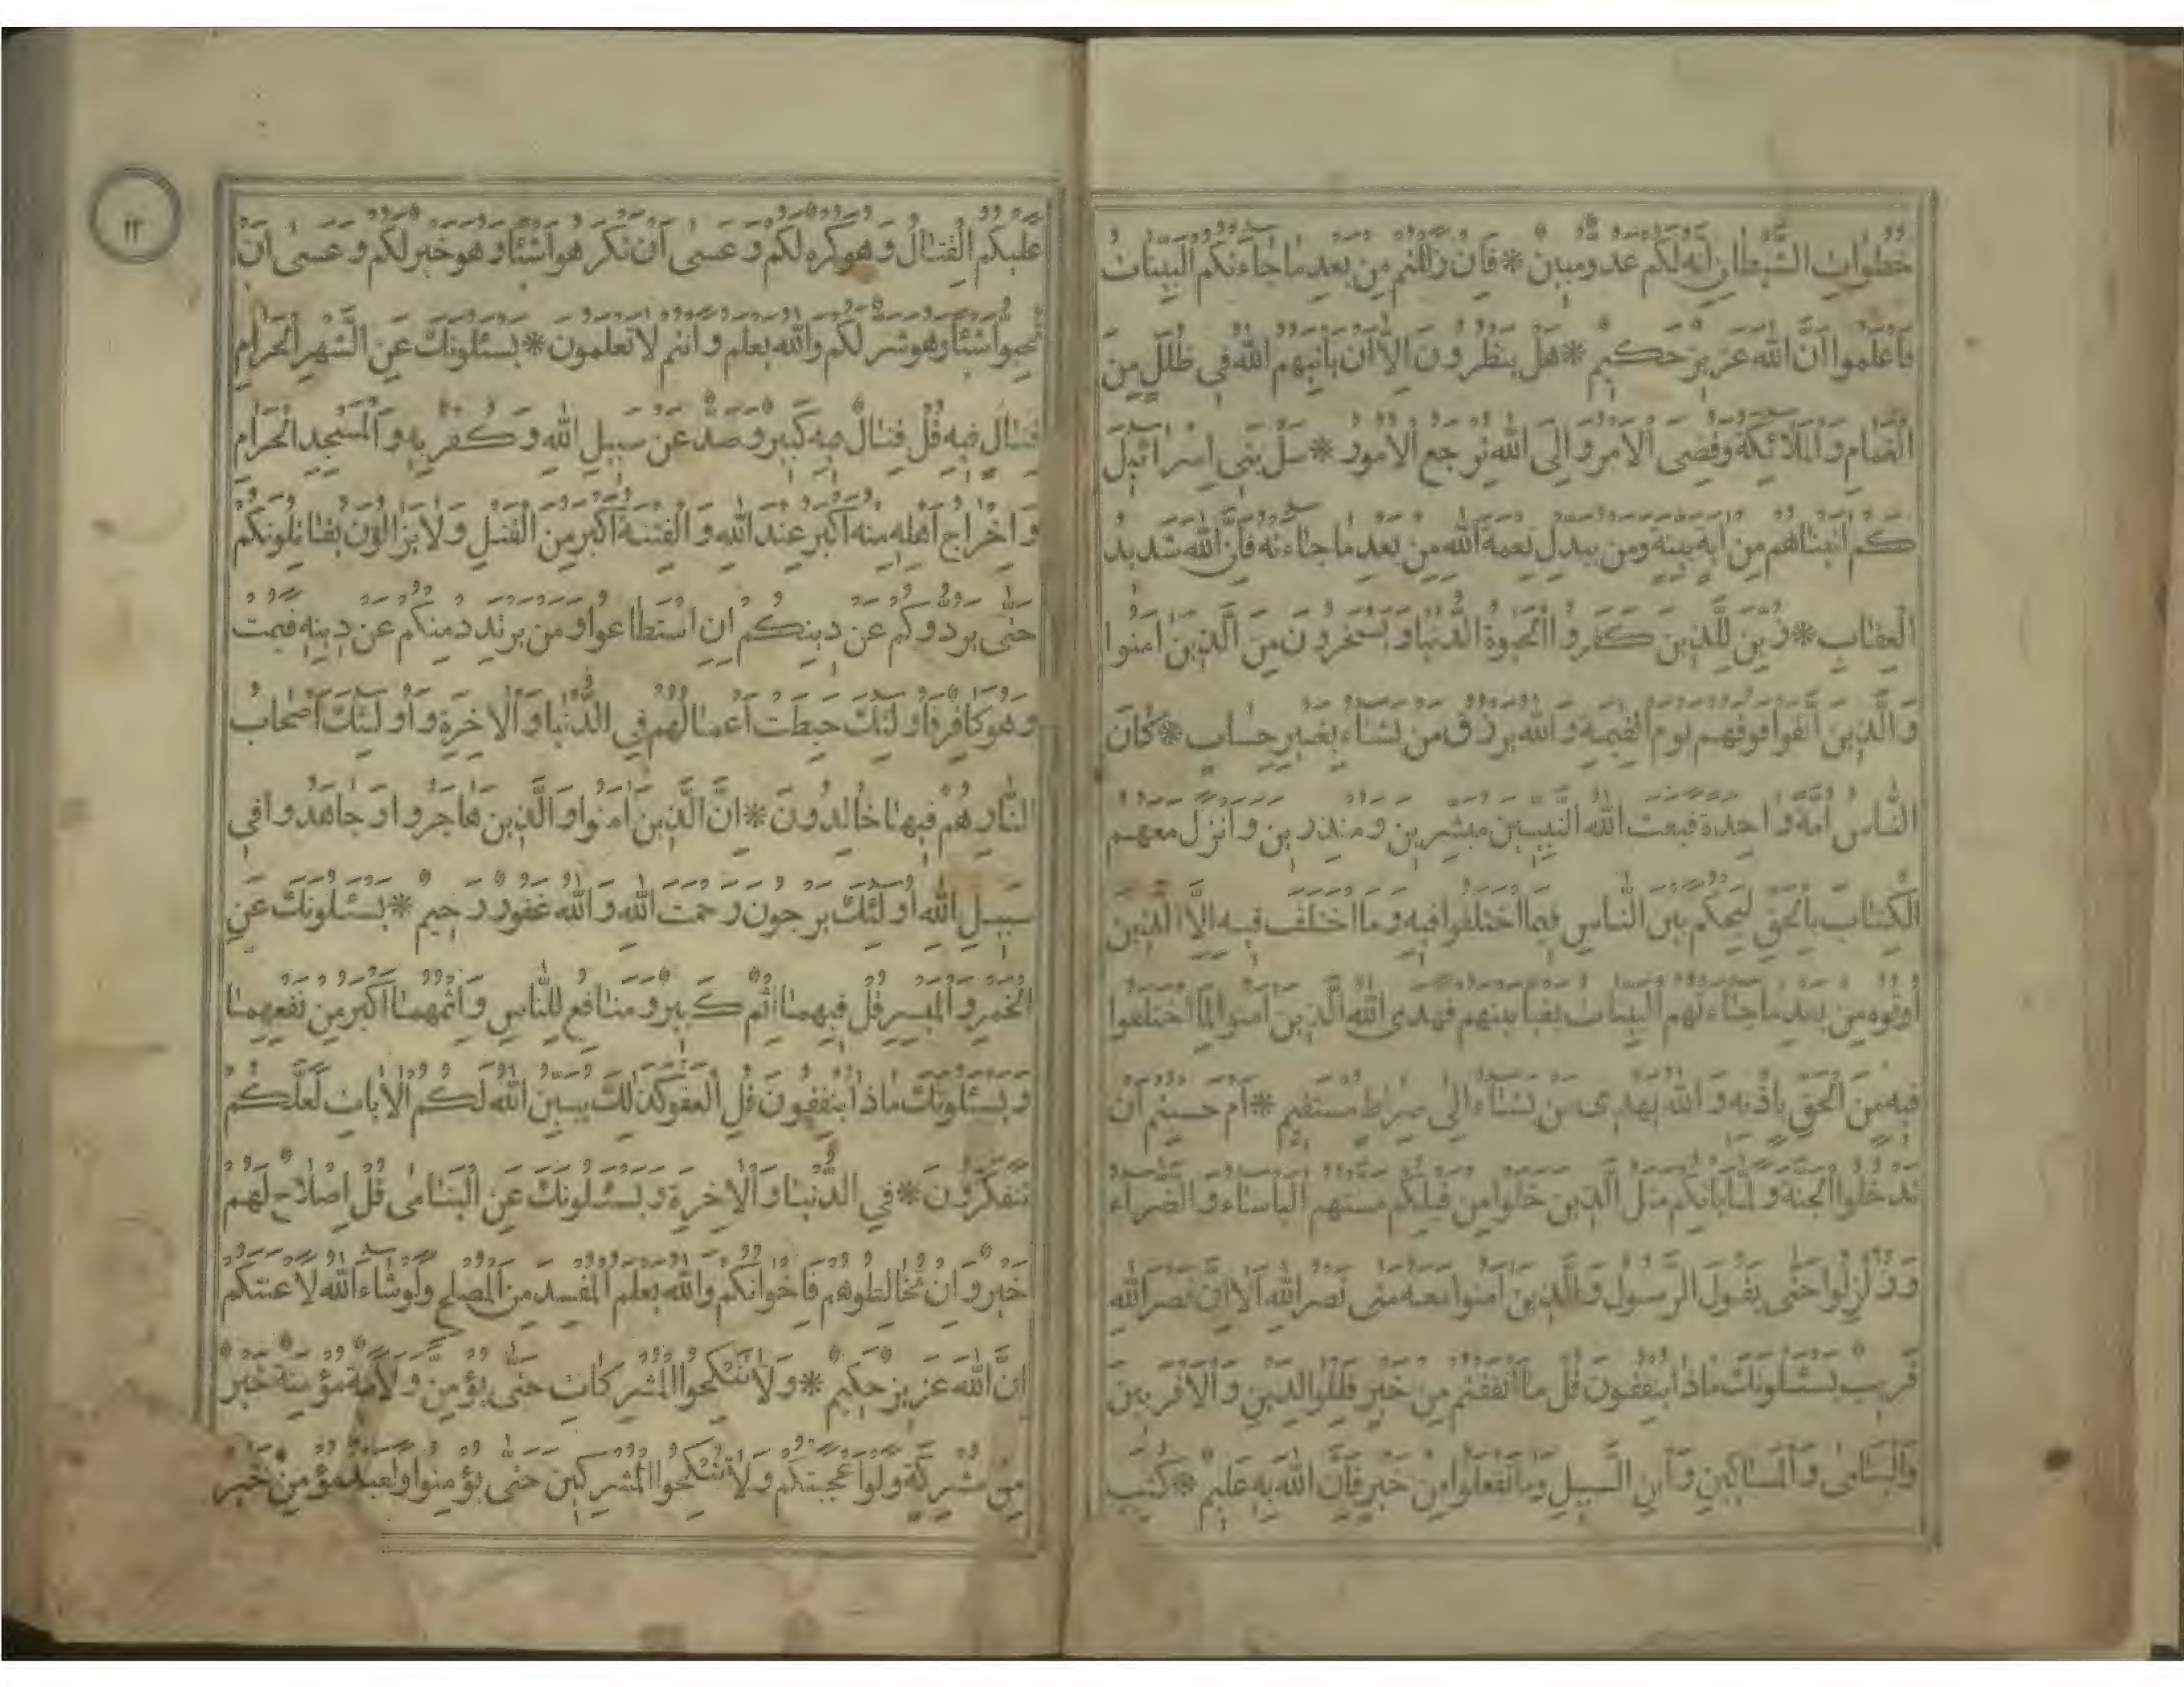 خُطُوَاتِ الشَّيْطَانِ إِنَّهُ لَكُمْ عَدُوٌّ مُبِينٌ * فَإِنْ زَلَلْتُمْ مِنْ بَعْدِ مَا جَاءَتْكُمُ الْبَيِّنَاتُ
فَاعْلَمُوا أَنَّ اللَّهَ عَزِيزٌ حَكِيمٌ * هَلْ يَنْظُرُونَ إِلَّا أَنْ يَأْتِيَهُمُ اللَّهُ فِي ظُلَلٍ مِنَ
الْغَمَامِ وَالْمَلَائِكَةُ وَقُضِيَ الْأَمْرُ وَإِلَى اللَّهِ تُرْجَعُ الْأُمُورُ * سَلْ بَنِي إِسْرَائِيلَ
كَمْ آتَيْنَاهُمْ مِنْ آيَةٍ بَيِّنَةٍ وَمَنْ يُبَدِّلْ نِعْمَةَ اللَّهِ مِنْ بَعْدِ مَا جَاءَتْهُ فَإِنَّ اللَّهَ شَدِيدُ
الْعِقَابِ * زُيِّنَ لِلَّذِينَ كَفَرُوا الْحَيٰوةُ الدُّنْيَا وَيَسْخَرُونَ مِنَ الَّذِينَ آمَنُوا
وَالَّذِينَ اتَّقَوْا فَوْقَهُمْ يَوْمَ الْقِيٰمَةِ وَاللَّهُ يَرْزُقُ مَنْ يَشَاءُ بِغَيْرِ حِسَابٍ * كَانَ
النَّاسُ أُمَّةً وَاحِدَةً فَبَعَثَ اللَّهُ النَّبِيِّينَ مُبَشِّرِينَ وَمُنْذِرِينَ وَأَنْزَلَ مَعَهُمُ
الْكِتَابَ بِالْحَقِّ لِيَحْكُمَ بَيْنَ النَّاسِ فِيمَا اخْتَلَفُوا فِيهِ وَمَا اخْتَلَفَ فِيهِ إِلَّا الَّذِينَ
أُوتُوهُ مِنْ بَعْدِ مَا جَاءَتْهُمُ الْبَيِّنَاتُ بَغْيًا بَيْنَهُمْ فَهَدَى اللَّهُ الَّذِينَ آمَنُوا لِمَا اخْتَلَفُوا
فِيهِ مِنَ الْحَقِّ بِإِذْنِهِ وَاللَّهُ يَهْدِي مَنْ يَشَاءُ إِلَى صِرَاطٍ مُسْتَقِيمٍ * أَمْ حَسِبْتُمْ أَنْ
تَدْخُلُوا الْجَنَّةَ وَلَمَّا يَأْتِكُمْ مَثَلُ الَّذِينَ خَلَوْا مِنْ قَبْلِكُمْ مَسَّتْهُمُ الْبَأْسَاءُ وَالضَّرَّاءُ
وَزُلْزِلُوا حَتَّى يَقُولَ الرَّسُولُ وَالَّذِينَ آمَنُوا مَعَهُ مَتَى نَصْرُ اللَّهِ أَلَا إِنَّ نَصْرَ اللَّهِ
قَرِيبٌ يَسْئَلُونَكَ مَاذَا يُنْفِقُونَ قُلْ مَا أَنْفَقْتُمْ مِنْ خَيْرٍ فَلِلْوَالِدَيْنِ وَالْأَقْرَبِينَ
وَالْيَتَامَى وَالْمَسَاكِينِ وَابْنِ السَّبِيلِ وَمَا تَفْعَلُوا مِنْ خَيْرٍ فَإِنَّ اللَّهَ بِهِ عَلِيمٌ * كُتِبَ
١٢
عَلَيْكُمُ الْقِتَالُ وَهُوَ كُرْهٌ لَكُمْ وَعَسَى أَنْ تَكْرَهُوا شَيْئًا وَهُوَ خَيْرٌ لَكُمْ وَعَسَى أَنْ
تُحِبُّوا شَيْئًا وَهُوَ شَرٌّ لَكُمْ وَاللَّهُ يَعْلَمُ وَأَنْتُمْ لَا تَعْلَمُونَ * يَسْئَلُونَكَ عَنِ الشَّهْرِ الْحَرَامِ
قِتَالٍ فِيهِ قُلْ قِتَالٌ فِيهِ كَبِيرٌ وَصَدٌّ عَنْ سَبِيلِ اللَّهِ وَكُفْرٌ بِهِ وَالْمَسْجِدِ الْحَرَامِ
وَإِخْرَاجُ أَهْلِهِ مِنْهُ أَكْبَرُ عِنْدَ اللَّهِ وَالْفِتْنَةُ أَكْبَرُ مِنَ الْقَتْلِ وَلَا يَزَالُونَ يُقَاتِلُونَكُمْ
حَتَّى يَرُدُّوكُمْ عَنْ دِينِكُمْ إِنِ اسْتَطَاعُوا وَمَنْ يَرْتَدِدْ مِنْكُمْ عَنْ دِينِهِ فَيَمُتْ
وَهُوَ كَافِرٌ فَأُولَئِكَ حَبِطَتْ أَعْمَالُهُمْ فِي الدُّنْيَا وَالْآخِرَةِ وَأُولَئِكَ أَصْحَابُ
النَّارِ هُمْ فِيهَا خَالِدُونَ * إِنَّ الَّذِينَ آمَنُوا وَالَّذِينَ هَاجَرُوا وَجَاهَدُوا فِي
سَبِيلِ اللَّهِ أُولَئِكَ يَرْجُونَ رَحْمَتَ اللَّهِ وَاللَّهُ غَفُورٌ رَحِيمٌ * يَسْئَلُونَكَ عَنِ
الْخَمْرِ وَالْمَيْسِرِ قُلْ فِيهِمَا إِثْمٌ كَبِيرٌ وَمَنَافِعُ لِلنَّاسِ وَإِثْمُهُمَا أَكْبَرُ مِنْ نَفْعِهِمَا
وَيَسْئَلُونَكَ مَاذَا يُنْفِقُونَ قُلِ الْعَفْوَ كَذَلِكَ يُبَيِّنُ اللَّهُ لَكُمُ الْآيَاتِ لَعَلَّكُمْ
تَتَفَكَّرُونَ * فِي الدُّنْيَا وَالْآخِرَةِ وَيَسْئَلُونَكَ عَنِ الْيَتَامَى قُلْ إِصْلَاحٌ لَهُمْ
خَيْرٌ وَإِنْ تُخَالِطُوهُمْ فَإِخْوَانُكُمْ وَاللَّهُ يَعْلَمُ الْمُفْسِدَ مِنَ الْمُصْلِحِ وَلَوْ شَاءَ اللَّهُ لَأَعْنَتَكُمْ
إِنَّ اللَّهَ عَزِيزٌ حَكِيمٌ * وَلَا تَنْكِحُوا الْمُشْرِكَاتِ حَتَّى يُؤْمِنَّ وَلَأَمَةٌ مُؤْمِنَةٌ خَيْرٌ
مِنْ مُشْرِكَةٍ وَلَوْ أَعْجَبَتْكُمْ وَلَا تُنْكِحُوا الْمُشْرِكِينَ حَتَّى يُؤْمِنُوا وَلَعَبْدٌ مُؤْمِنٌ خَيْرٌ